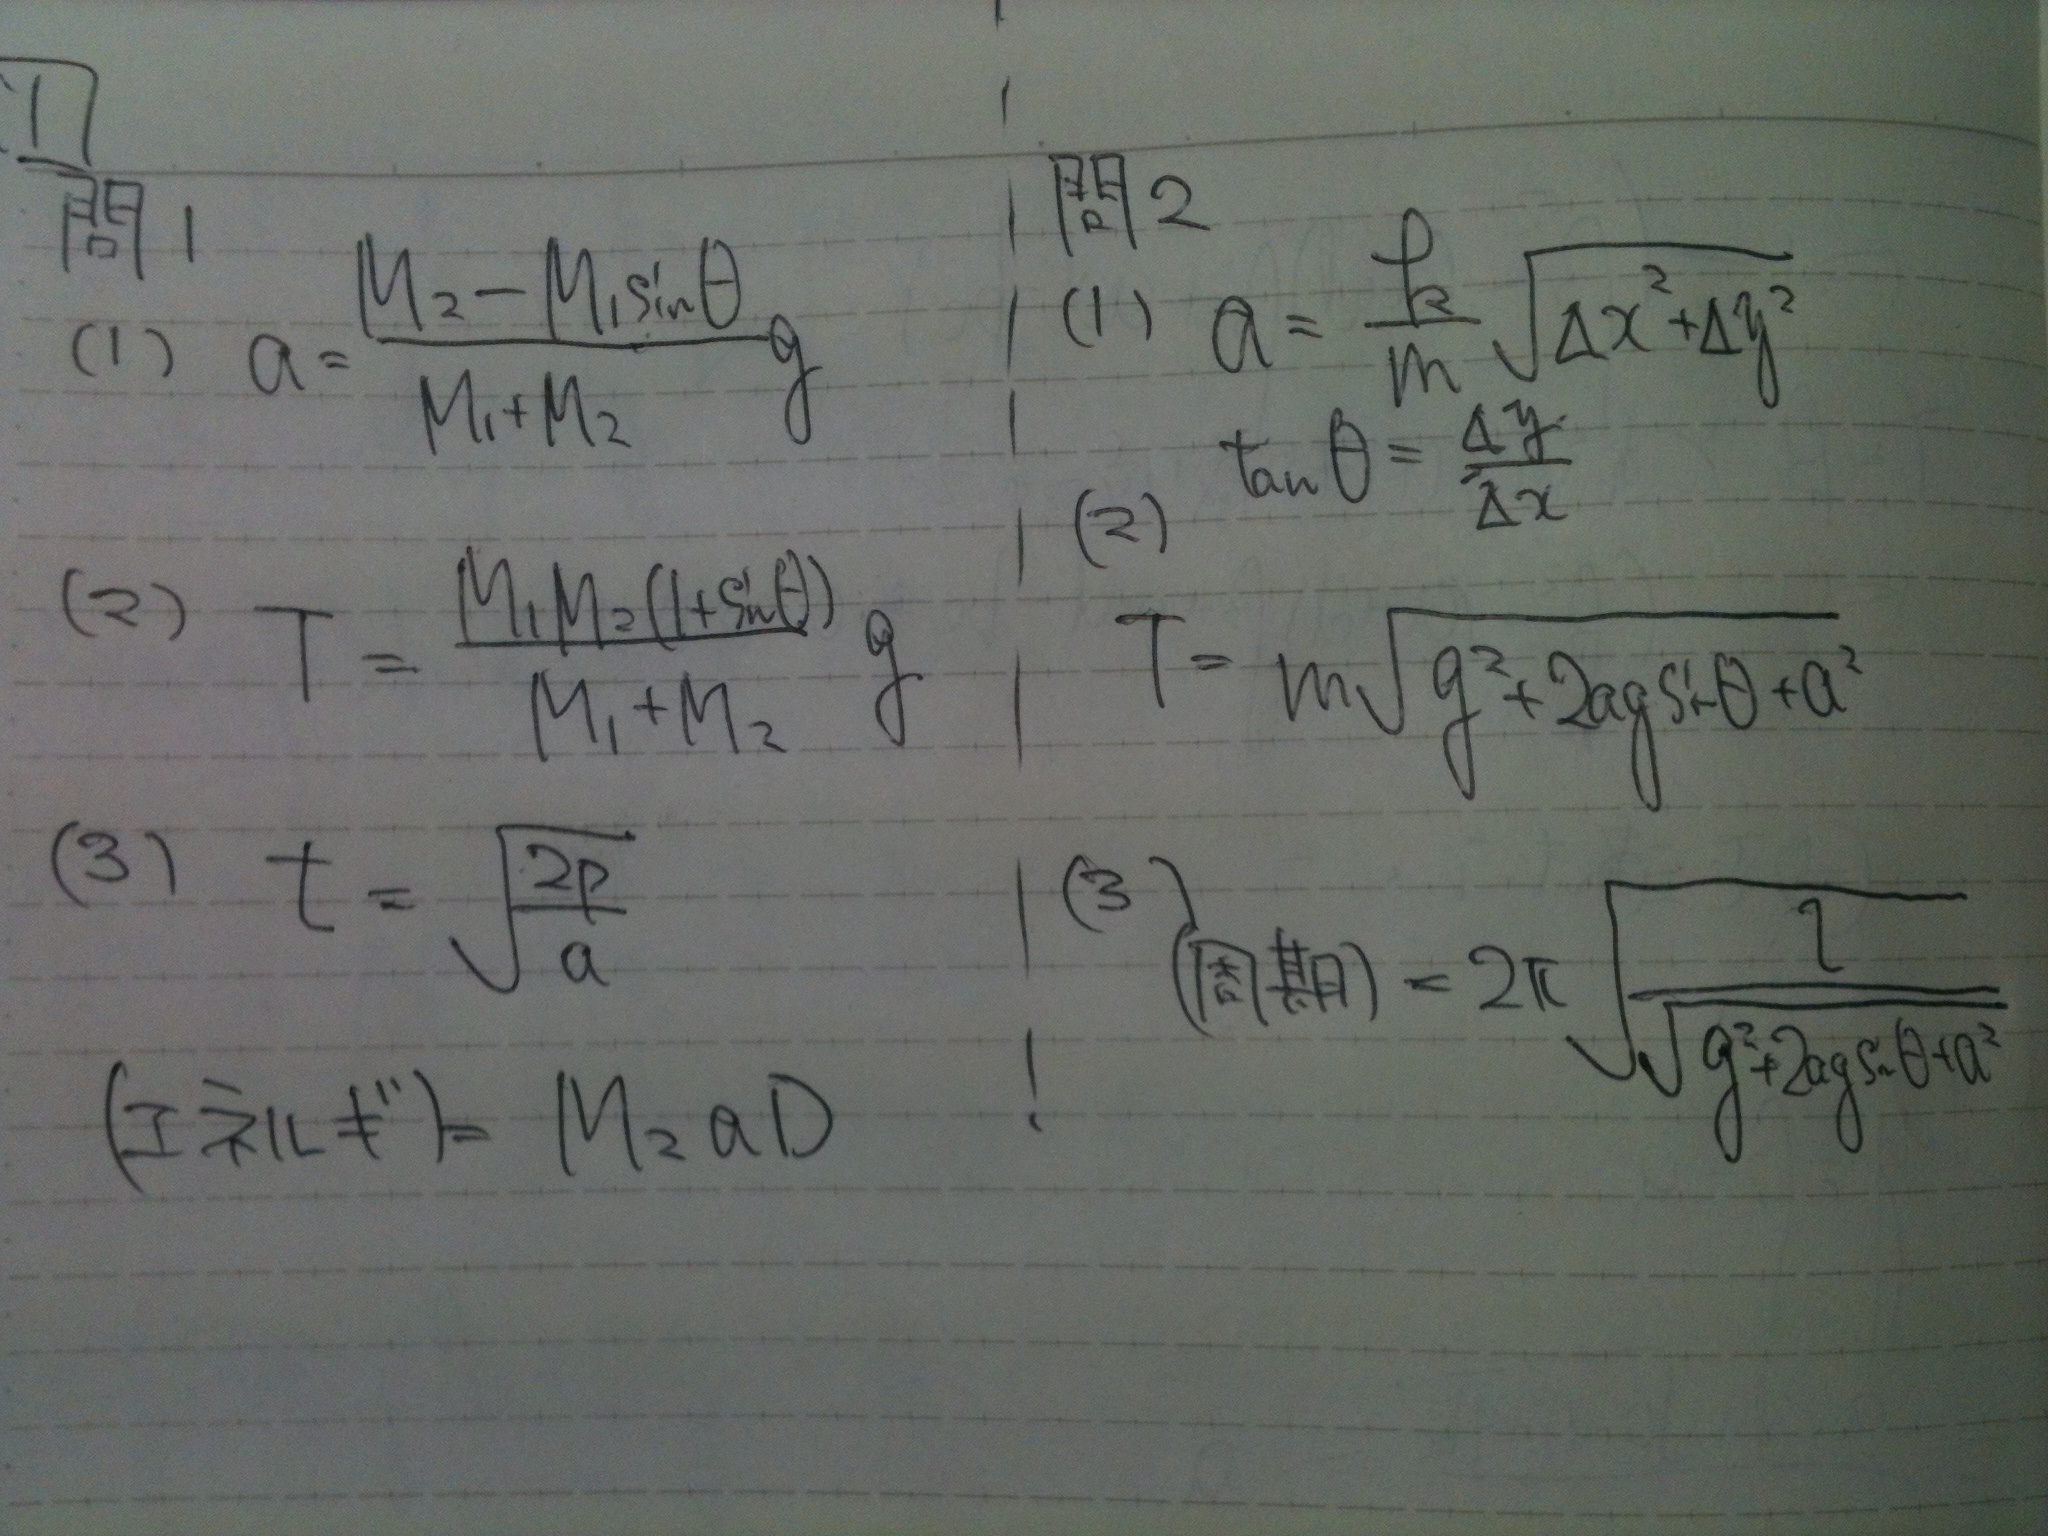 1
問1
(1) a = \frac{M₂ - M₁sinθ}{M₁+M₂} g
(2) T = \frac{M₁M₂(1+sinθ)}{M₁+M₂} g
(3) t = \sqrt{\frac{2D}{a}}
(エネルギ) = M₂aD
問2
(1) a = \frac{k}{m} \sqrt{Δx²+Δy²}
tanθ = \frac{Δy}{Δx}
(2)
T = m\sqrt{g²+2agsinθ+a²}
(3)
(周期) = 2π \sqrt{\frac{l}{\sqrt{g²+2agsinθ+a²}}}